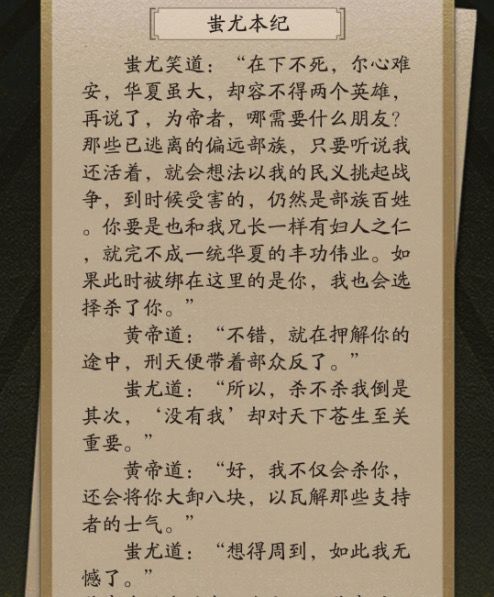 蚩尤本纪
蚩尤笑道：“在下不死，尔心难
安，华夏虽大，却容不得两个英雄，
再说了，为帝者，哪需要什么朋友？
那些已逃离的偏远部族，只要听说我
还活着，就会想法以我的民义挑起战
争，到时候受害的，仍然是部族百姓
。你要是也和我兄长一样有妇人之仁
，就完不成一统华夏的丰功伟业。如
果此时被绑在这里的是你，我也会选
择杀了你。”
黄帝道：“不错，就在押解你的
途中，刑天便带着部众反了。”
蚩尤道：“所以，杀不杀我倒是
其次，‘没有我’却对天下苍生至关
重要。”
黄帝道：“好，我不仅会杀你，
还会将你大卸八块，以瓦解那些支持
者的士气。”
蚩尤道：“想得周到，如此我无
憾了。”